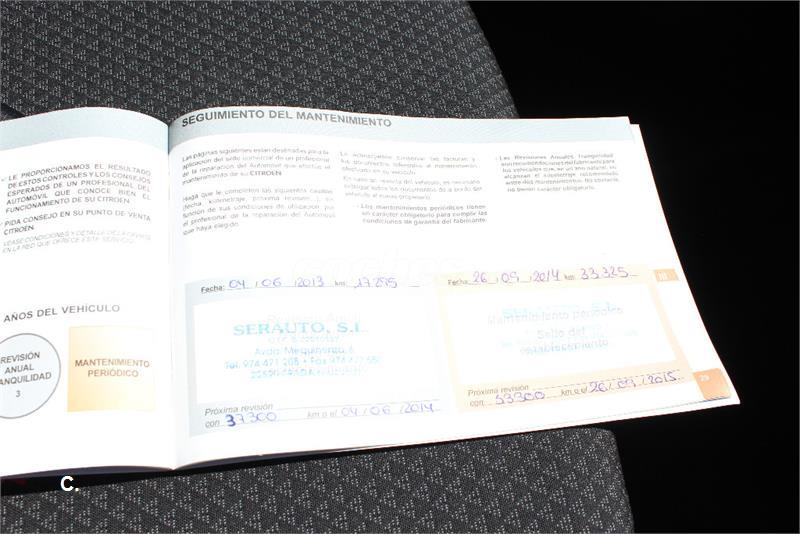 LE PROPORCIONAMOS EL RESULTADO
DE ESTOS CONTROLES Y LOS CONSEJOS
ESPERADOS DE UN PROFESIONAL DEL
AUTOMÓVIL QUE CONOCE BIEN EL
FUNCIONAMIENTO DE SU CITROËN.
PIDA CONSEJO EN SU PUNTO DE VENTA
CITROËN.
VEASE CONDICIONES Y DETALLE DE LA
EN LA RED QUE OFRECE ESTE SERVICIO
AÑOS DEL VEHÍCULO
REVISIÓN
ANUAL
TRANQUILIDAD
3
MANTENIMIENTO
PERIÓDICO
SEGUIMIENTO DEL MANTENIMIENTO
Las páginas siguientes están destinadas para la
aplicación del sello comercial de un profesional
de la reparación del Automóvil que efectúe el
mantenimiento de su CITROËN
Haga que le completen las siguientes casillas
(fecha, kilometraje, próxima revisión...), en
función de sus condiciones de utilización, por
el profesional de la reparación del Automóvil
que haya elegido.
Le aconsejamos conservar las facturas y
los documentos referentes al mantenimiento
efectuado en su vehículo.
En caso de reventa del vehículo, es necesario
entregar todos los documentos de a bordo del
vehículo al nuevo propietario.
- Los mantenimientos periódicos tienen
un carácter obligatorio para cumplir las
condiciones de garantía del fabricante.
- Las Revisiones Anuales Tranquilidad
son recomendaciones del fabricante para
los vehículos que, en un año natural, no
alcanzan el kilometraje recomendado
entre dos mantenimientos. No obstante,
no tienen carácter obligatorio.
Fecha: 04 / 06 / 2013 km: 17295
SERAUTO, S.L.
Avda. Mequinenza, 6
Próxima revisión
con 37300 km o el 04 / 06 / 2014
Fecha: 26 / 09 / 2014 km: 33325
SERAUTO, S.L.
Mantenimiento periódico
Sello del
establecimiento
Próxima revisión
con 53300 km o el 26 / 09 / 2015
III
29
C.